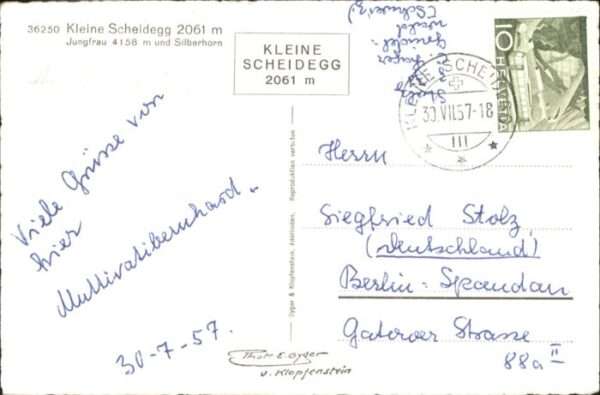 36250 Kleine Scheidegg 2061 m
Jungfrau 4158 m und Silberhorn
KLEINE
SCHEIDEGG
2061 m
Viele Grüsse von
hier
30-7-57.
10
HELVETIA
KLEINE SCHEIDEGG
30.VII.57-18
III
Herrn
Siegfried Stolz
(Deutschland)
Berlin-Spandau
Gatower Strasse
88a II
Gyger & Klopfenstein, Adelboden. Reproduktion verboten
Phot. E. Gyger
u. Klopfenstein
(Schweiz)